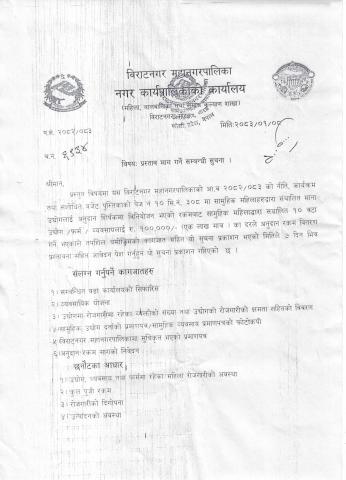 विराटनगर महानगरपालिका
नगर कार्यपालिकाको कार्यालय
(महिला, बालबालिका तथा समाज कल्याण शाखा)
विराटनगर, मोरङ्ग,
कोशी प्रदेश, नेपाल
प.सं. २०८२/०८३
मिति:२०८३/०१/०८
च.नं.
विषय: प्रस्ताव माग गर्ने सम्बन्धी सूचना ।
श्रीमान्,
प्रस्तुत विषयमा यस विराटनगर महानगरपालिकाको आ.व २०८२/०८३ को नीति, कार्यक्रम
तथा स्वीकृत बजेट पुस्तिकाको पेज नं १० सि.नं. ३०८ मा सामूहिक महिलाहरूद्वारा संचालित साना
उद्योगलाई अनुदान शिर्षकमा विनियोजन भएको रकमबाट सामूहिक महिलाहरूद्वारा संचालित १० वटा
उद्योग /फर्म / व्यवसायलाई रु. १००,०००/- (एक लाख मात्र । का दरले अनुदान रकम वितरण
गर्ने भएकाले तपशिल बमोजिमको कागजात सहित यो सूचना प्रकाशन भएको मितिले ७ दिन भित्र
प्रस्तावना सहित आवेदन पेश गर्नुहुन यो सूचना प्रकाशन गरिएको छ ।
संलग्न गर्नुपर्ने कागजातहरु
१।सम्बन्धित वडा कार्यालयको सिफारिस
२।व्यवसायिक योजना
३।उद्योगमा रोजगारीमा रहेका व्यक्तीको संख्या तथा उद्योगको रोजगारीको क्षमता सहितको विवरण
४।सामूहिक, उद्योग दर्ताको प्रमाणपत्र/सामूहिक व्यवसाय प्रमाणपत्रको फोटोकपी
५।विराटनगर महानगरपालिकामा सूचिकृत भएको प्रमाणपत्र
६।अनुदान रकम मागको निवेदन
छनौटका आधार
१।उद्योग, व्यवसाय तथा फर्ममा रहेका महिला रोजगारीको अवस्था
२।कुल पूंजी रकम
३।रोजगारीको दिगोपना
४।उत्पादनको अवस्था